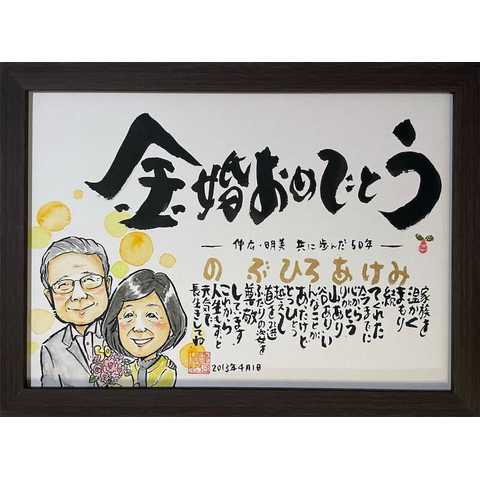 金婚おめでとう
伸広・明美 共に歩んだ50年
のぶひろあけみ
家族を
温かく
まもり
続け
てくれた
今までに
心から
ありがとう
山あり
谷ありい
ろんなことが
あったけど
ひとつひとつ
越えて
道を進む
ふたりの姿を
尊敬
しています!
これから
人生もずっと
元気で
長生きしてね
2013年4月1日